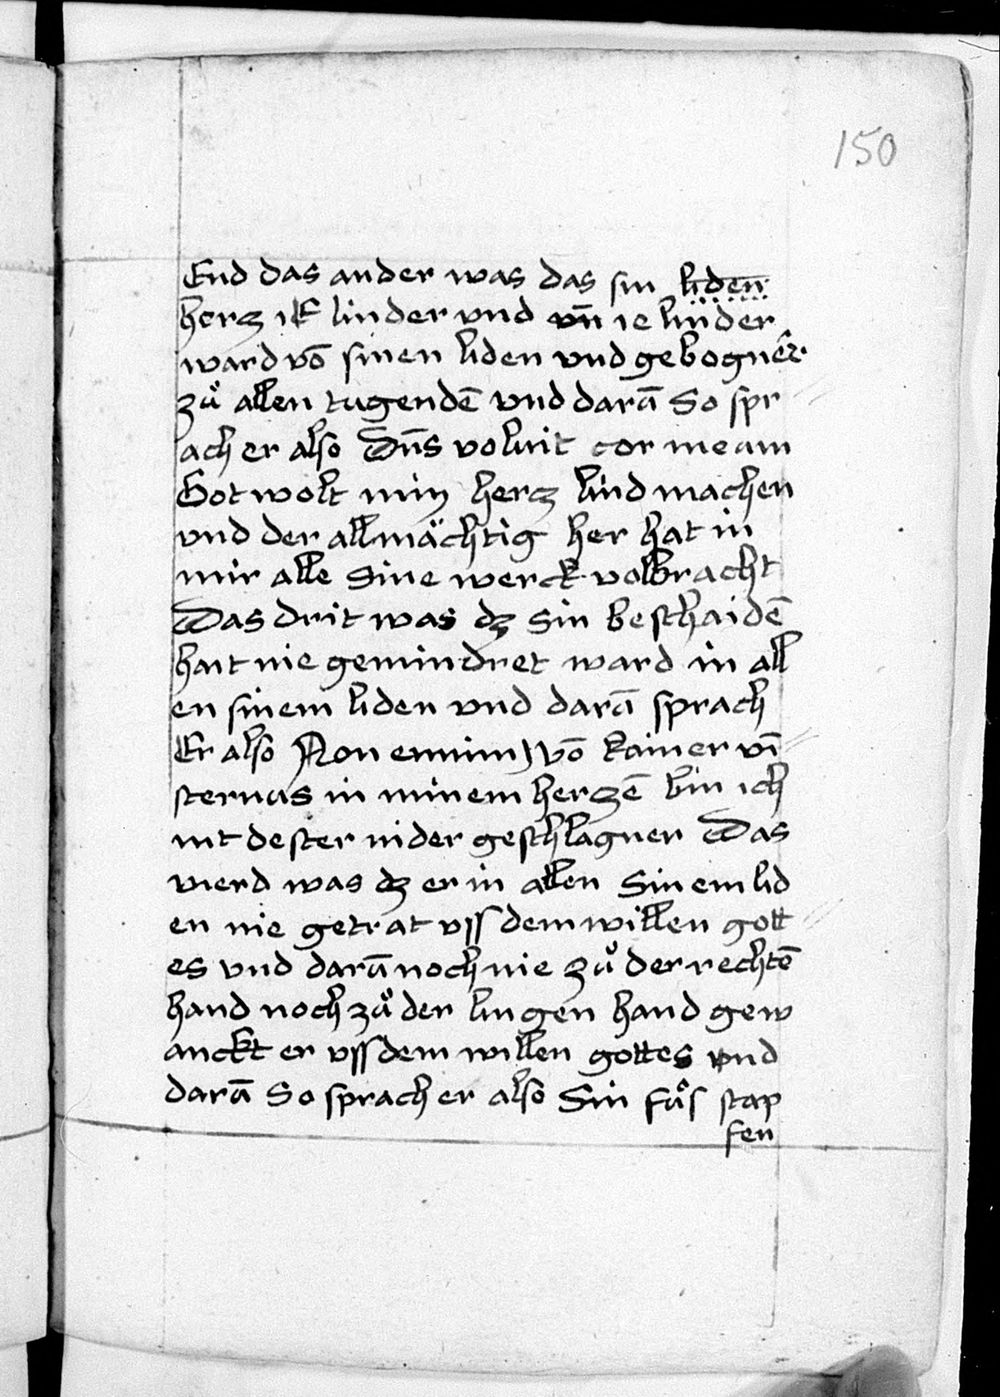 150
End das ander was das sin liden
herz ie linder vnd vn̄ ie linder
ward vō sinen liden vnd gebogner
zů allen tugendē vnd darū So spr
ach er also Dn̄s voluit cor meam
Got wolt min herz lind machen
vnd der allmächtig her hat in
mir alle Sine werck volbracht
Das drit was dz Sin beschaidē
hait nie gemindret ward in all
en sinem liden vnd darū sprach
Er also Non ennim vō kainer vi
sternus in minem herzē bin ich
nit dester nider geschlagner Das
vierd was dz er in allen Sinem lid
en nie getrat vss dem willen gott
es vnd darū noch nie zů der rechtē
hand noch zů der lingen hand gew
anckt er vss dem willen gottes vnd
darū So sprach er also Sin fůs stap
fen